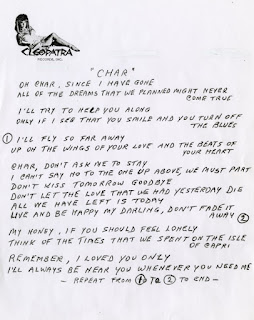 CLEOPATRA
RECORDS, INC.
"CHAR"
OH CHAR, SINCE I HAVE GONE
ALL OF THE DREAMS THAT WE PLANNED MIGHT NEVER
COME TRUE
I'LL TRY TO HELP YOU ALONG
ONLY IF I SEE THAT YOU SMILE AND YOU TURN OFF
THE BLUES
① I'LL FLY SO FAR AWAY
UP ON THE WINGS OF YOUR LOVE AND THE BEATS OF
YOUR HEART
CHAR, DON'T ASK ME TO STAY
I CAN'T SAY NO TO THE ONE UP ABOVE, WE MUST PART
DON'T KISS TOMORROW GOODBYE
DON'T LET THE LOVE THAT WE HAD YESTERDAY DIE
ALL WE HAVE LEFT IS TODAY
LIVE AND BE HAPPY MY DARLING, DON'T FADE IT
AWAY ②
MY HONEY, IF YOU SHOULD FEEL LONELY
THINK OF THE TIMES THAT WE SPENT ON THE ISLE
OF CAPRI
REMEMBER, I LOVED YOU ONLY
I'LL ALWAYS BE NEAR YOU WHENEVER YOU NEED ME
- REPEAT FROM ① TO ② TO END -